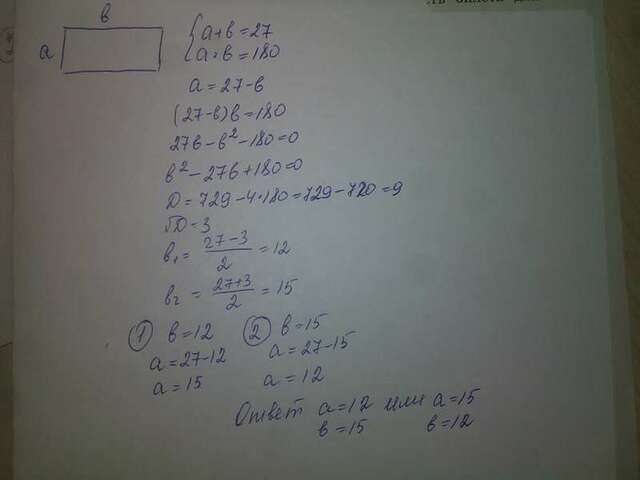 в
a
{a+в=27
a·в=180
a=27-в
(27-в)в=180
27в-в²-180=0
в²-27в+180=0
D=729-4·180=729-720=9
√D=3
в₁= (27-3)/2 =12
в₂ = (27+3)/2 =15
① в=12
a=27-12
a=15
② в=15
a=27-15
a=12
Ответ a=12 или a=15
в=15 в=12